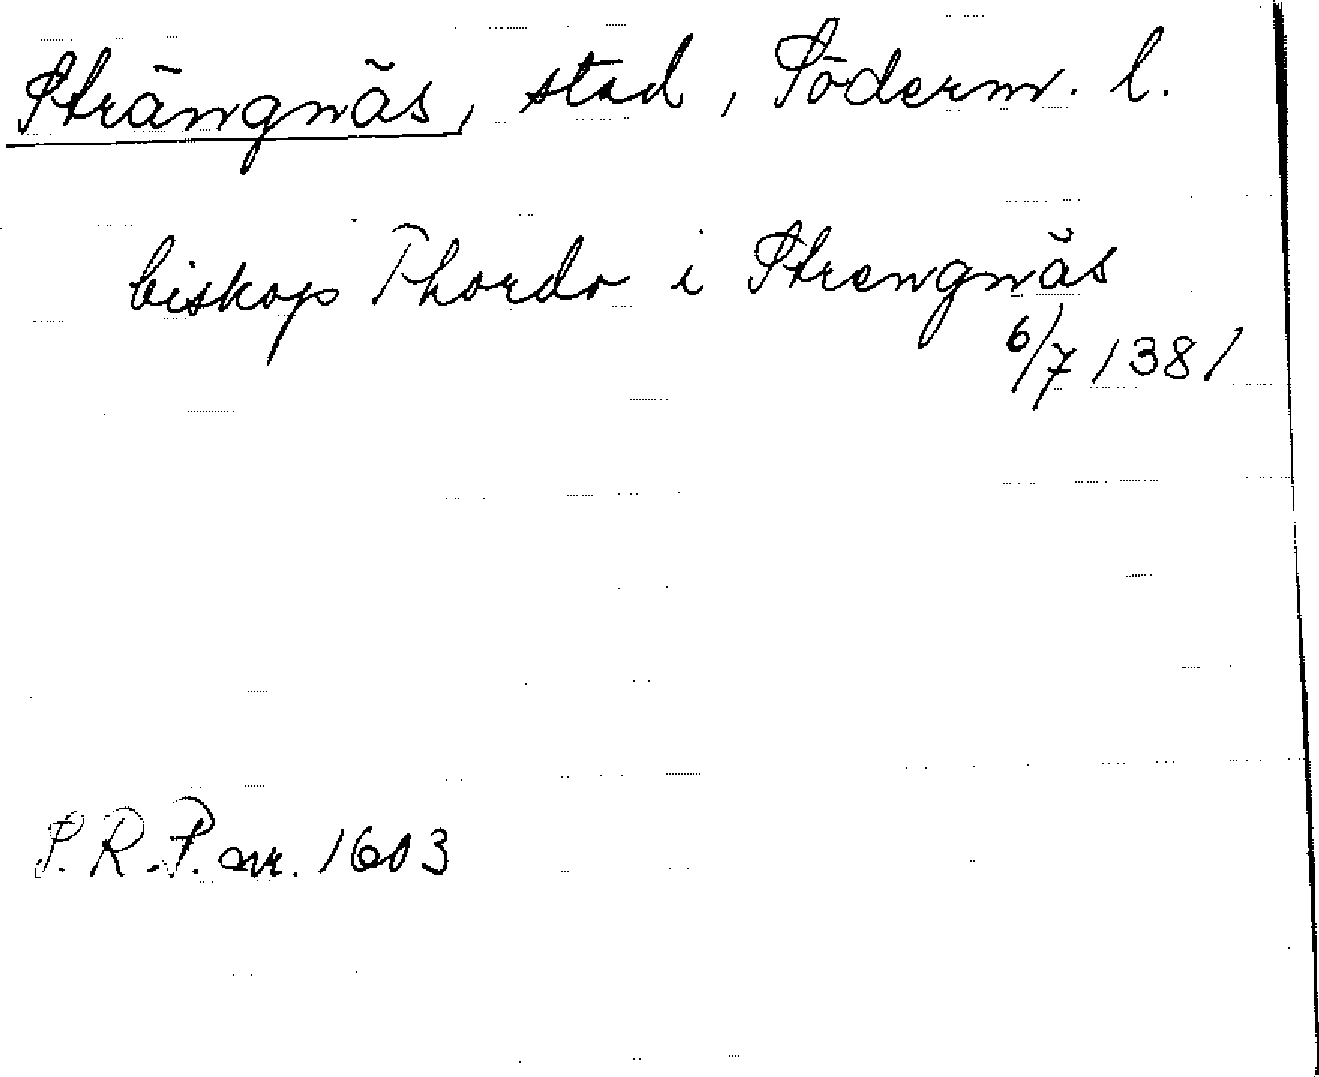 Strängnäs, stad, Söderm. l.
biskop Thordo i Strengnäs
6/7 1381
S.R.P. nr. 1603